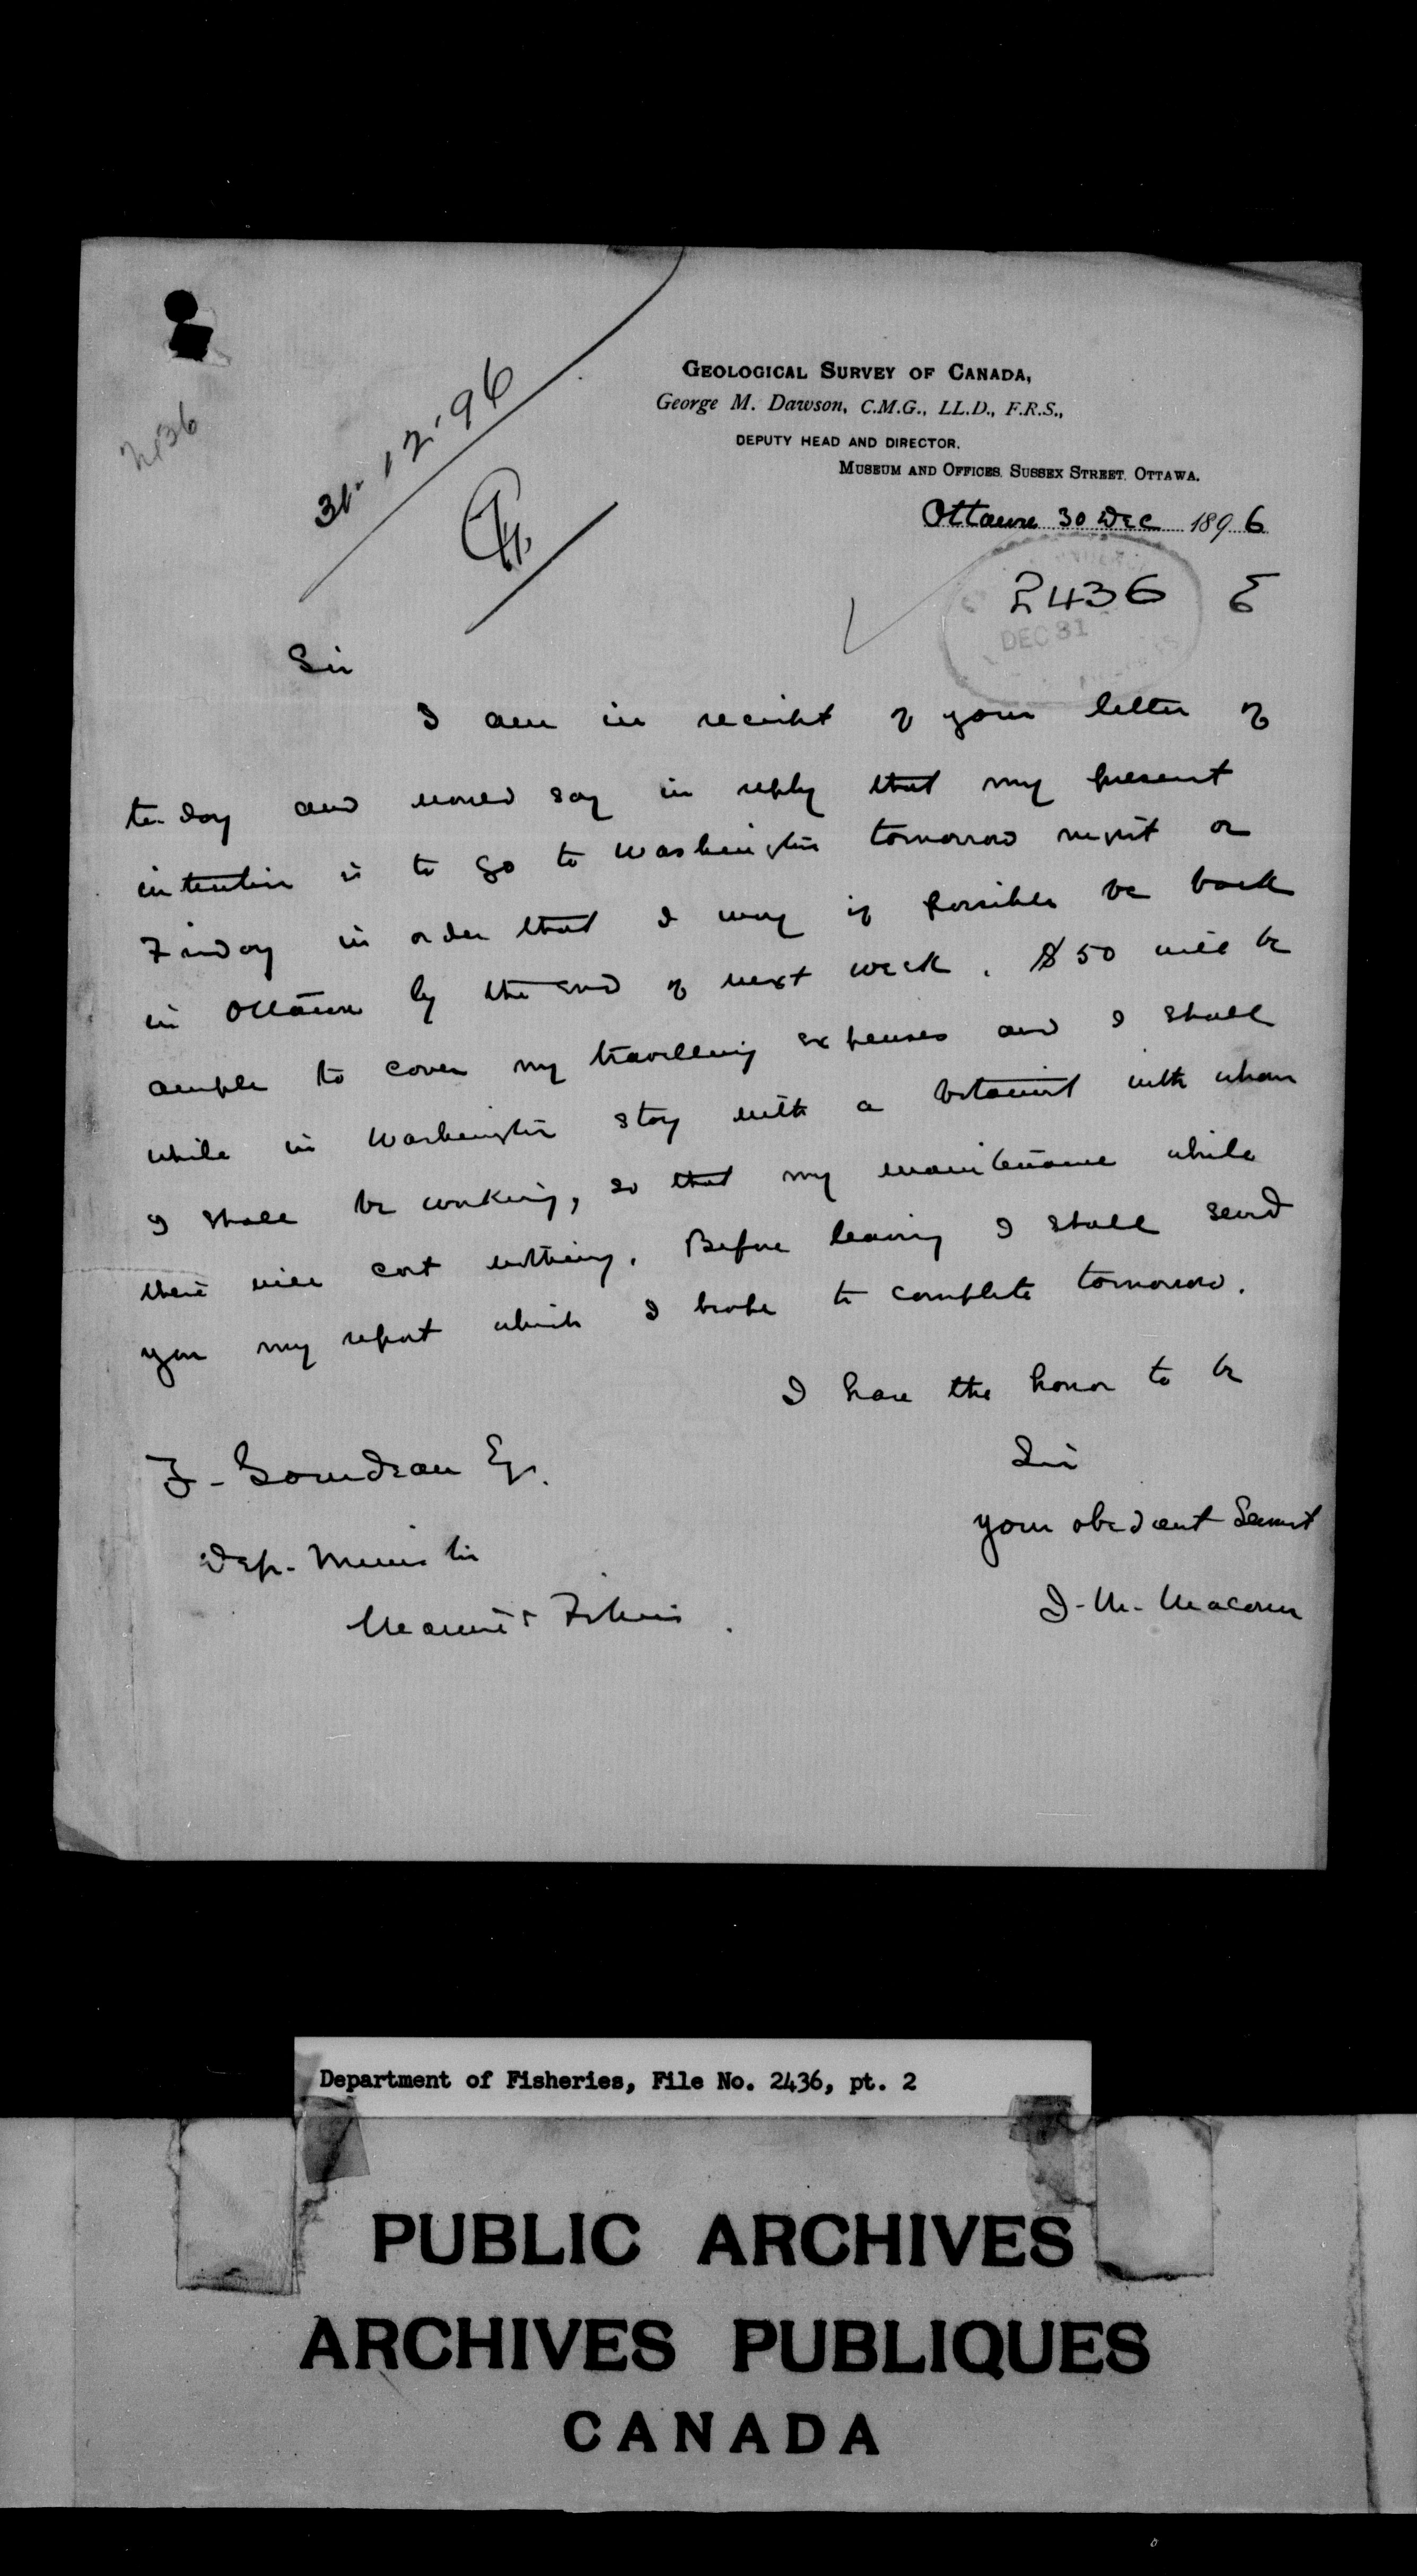 GEOLOGICAL SURVEY OF CANADA,
George M. Dawson, C.M.G., LL.D., F.R.S.,
DEPUTY HEAD AND DIRECTOR.
MUSEUM AND OFFICES, SUSSEX STREET, OTTAWA.
31.12.96
2436
Ottawa 30 Dec 1896
2436 E
DEC 31
Sir
I am in receipt of your letter of
to-day and would say in reply that my present
intention is to go to Washington tomorrow night or
Friday in order that I may if possible be back
in Ottawa by the end of next week. $50 will be
ample to cover my travelling expenses and I shall
while in Washington stay with a botanist with whom
I shall be working, so that my maintenance while
there will cost nothing. Before leaving I shall send
you my report which I hope to complete tomorrow.
I have the honor to be
Sir
your obedient Servant
J. M. Macoun
F. Gourdeau Esq.
Dep. Minister
Marine & Fisheries.
Department of Fisheries, File No. 2436, pt. 2
PUBLIC ARCHIVES
ARCHIVES PUBLIQUES
CANADA